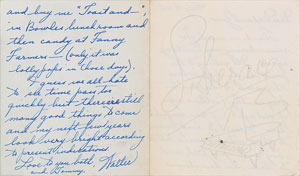 and buy me "Toast and"
in Bowles lunchroom and
then candy at Fanny
Farmers — (only it was
lollypops in those days).
I guess we all hate
to see time pass too
quickly but there are still
many good things to come
and my next few years
look very bright according
to present indications
Love to you both Walter
and Tommy.